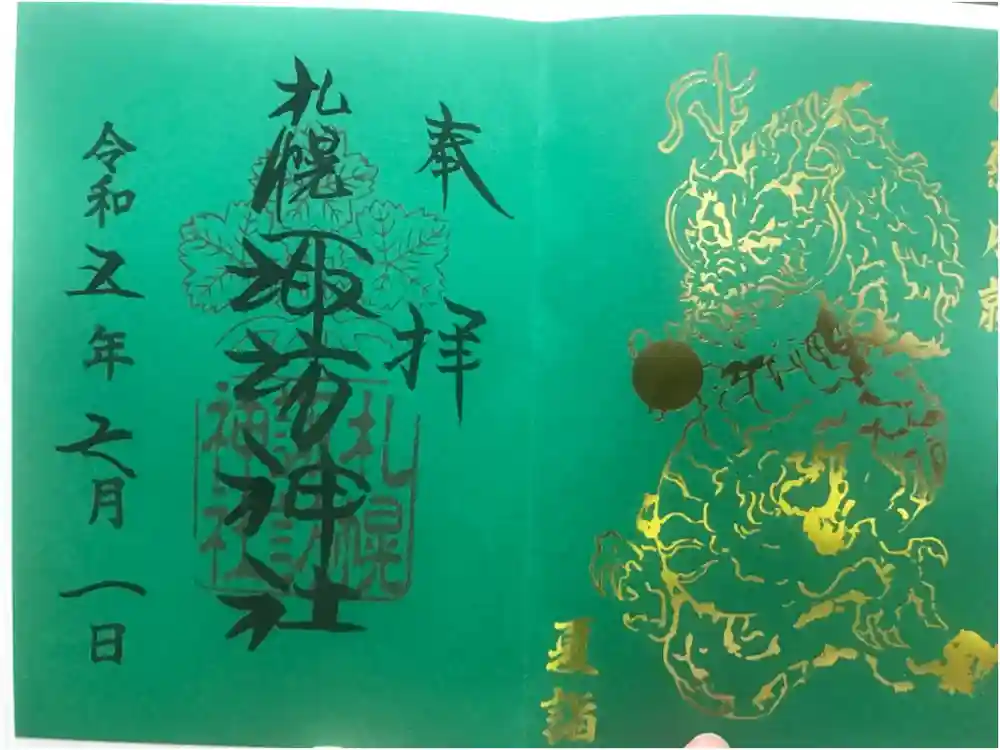 願成就
夏詣
奉拝
札幌諏訪神社
札幌
諏訪
神社
令和五年七月一日